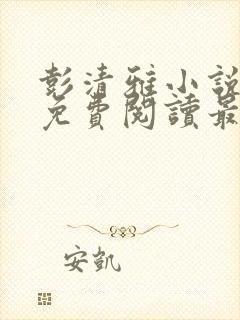 彭清雅小說
免費閱讀最
安凱